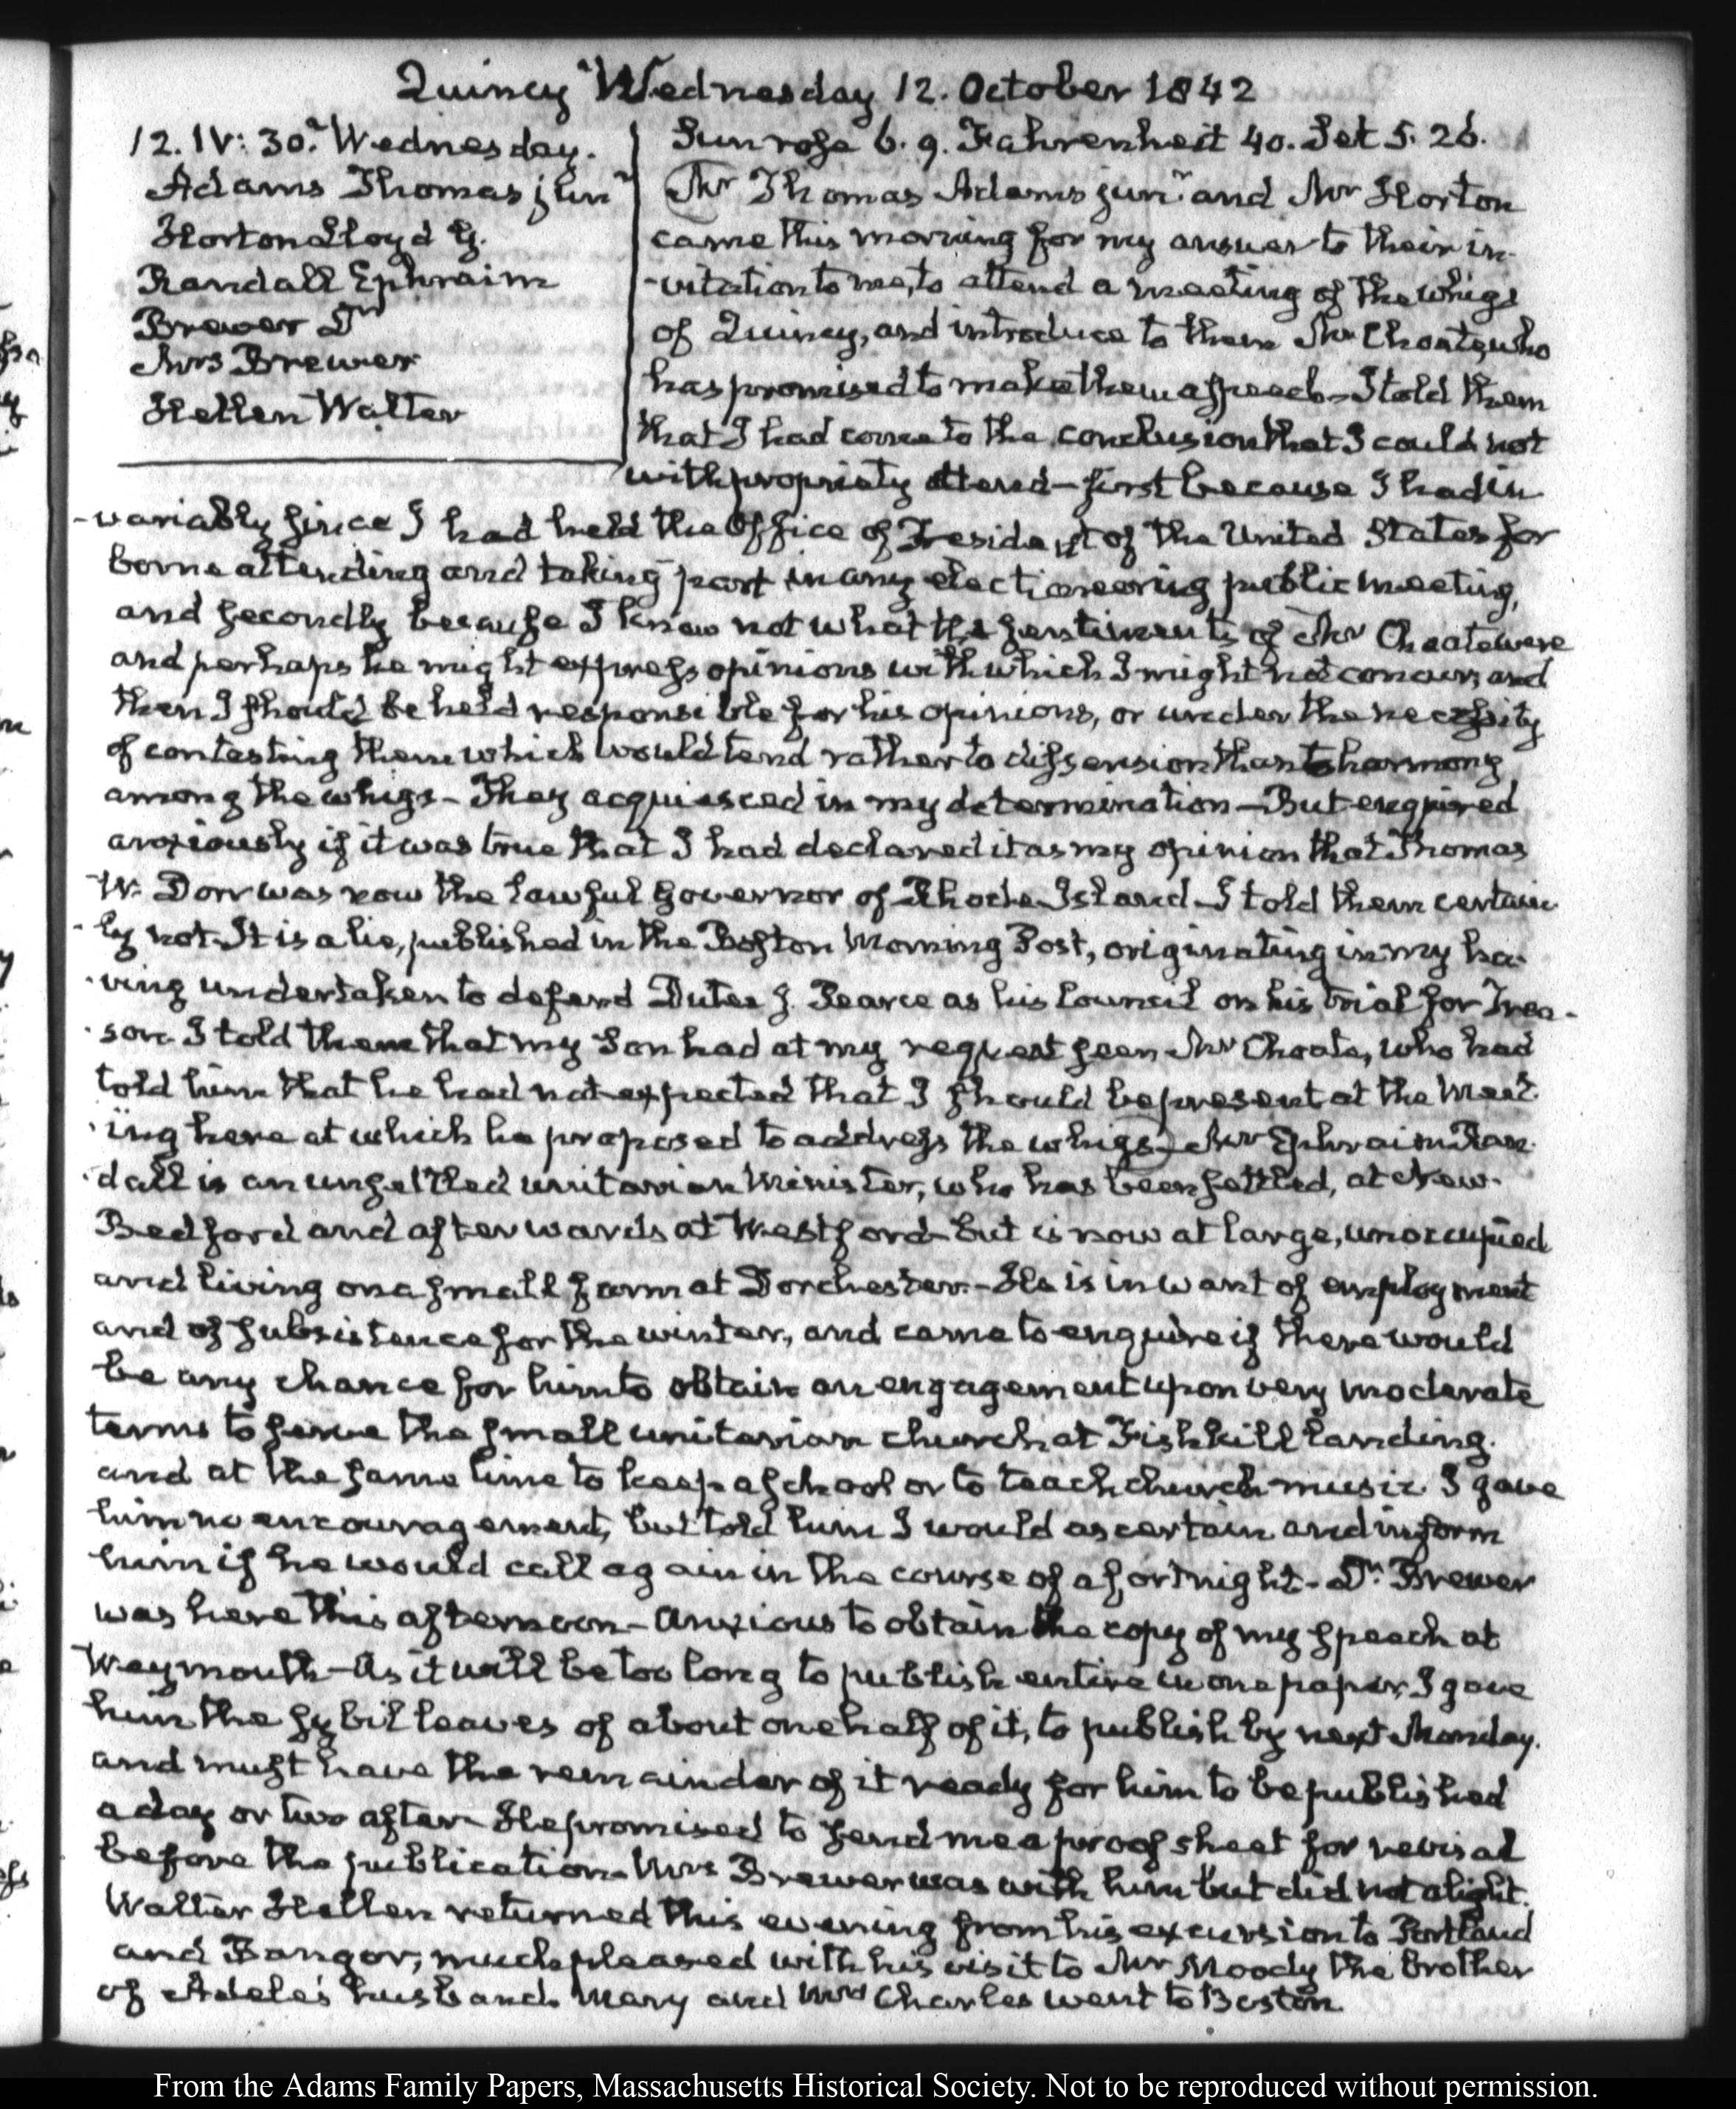 Quincy Wednesday 12. October 1842
12. IV: 30. Wednesday.
Adams Thomas junr
Horton Lloyd G.
Randall Ephraim
Brewer Dr
Mrs Brewer
Hellen Walter
Sun rose 6. 9. Fahrenheit 40. Set 5. 26.
Mr Thomas Adams junr. and Mr Horton
came this morning for my answer to their in-
-vitation to me, to attend a meeting of the Whigs
of Quincy, and introduce to them Mr Choate, who
has promised to make them a speech – I told them
that I had come to the conclusion that I could not
with propriety attend – first because I had in
-variably since I had held the Office of President of the United States for
borne attending and taking part in any electioneering public meeting,
and secondly because I knew not what the sentiments of Mr Choate were
and perhaps he might express opinions with which I might not concur, and
then I should be held responsible for his opinions, or under the necessity
of contesting them which would tend rather to dissension than to harmony
among the whigs – They acquiesced in my determination – But enquired
anxiously if it was true that I had declared it as my opinion that Thomas
W. Dorr was now the lawful Governor of Rhode Island – I told them certain
-ly not. It is a lie, published in the Boston Morning Post, originating in my ha-
-ving undertaken to defend Dutee J. Pearce as his Council on his trial for Trea-
-son. I told them that my Son had at my request seen Mr Choate, who had
told him that he had not expected that I should be present at the Meet-
-ing here at which he proposed to address the whigs – Mr Ephraim Ran-
-dall is an unsettled unitarian Minister, who has been settled, at New-
Bedford and afterwards at Westford but is now at large, unoccupied
and living on a small farm at Dorchester. – He is in want of employment
and of subsistence for the winter, and came to enquire if there would
be any chance for him to obtain an engagement upon very moderate
terms to serve the small unitarian church at Fishkill landing.
and at the same time to keep a school or to teach church music. I gave
him no encouragement, but told him I would ascertain and inform
him if he would call again in the course of a fortnight – Dr. Brewer
was here this afternoon – anxious to obtain the copy of my speech at
Weymouth – As it will be too long to publish entire in one paper, I gave
him the sybil leaves of about one half of it, to publish by next Monday.
and must have the remainder of it ready for him to be published
a day or two after – He promised to send me a proof sheet for revisal
before the publication – Mrs Brewer was with him but did not alight.
Walter Hellen returned this evening from his excursion to Portland
and Bangor; much pleased with his visit to Mr Moody the brother
of Adele's husband. Mary and Mrs Charles went to Boston.
From the Adams Family Papers, Massachusetts Historical Society. Not to be reproduced without permission.